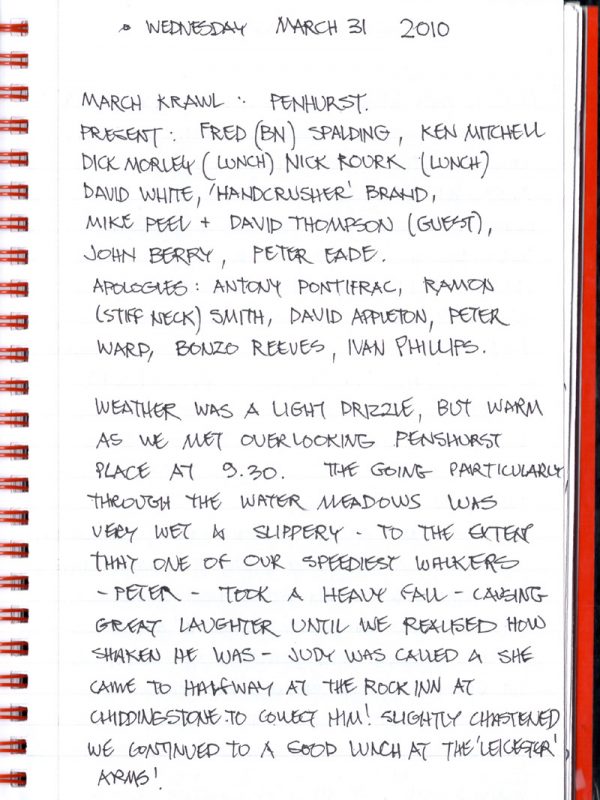 • WEDNESDAY MARCH 31 2010
MARCH KRAWL : PENHURST.
PRESENT : FRED (BN) SPALDING, KEN MITCHELL
DICK MORLEY (LUNCH) NICK ROURK (LUNCH)
DAVID WHITE, 'HANDCRUSHER' BRAND,
MIKE PEEL + DAVID THOMPSON (GUEST),
JOHN BERRY, PETER EADE.
APOLOGIES : ANTONY PONTIFRAC, RAMON
(STIFF NECK) SMITH, DAVID APPLETON, PETER
WARD, BONZO REEVES, IVAN PHILLIPS.
WEATHER WAS A LIGHT DRIZZLE, BUT WARM
AS WE MET OVERLOOKING PENSHURST
PLACE AT 9.30. THE GOING PAIRTICULARLY
THROUGH THE WATER MEADOWS WAS
VERY WET & SLIPPERY - TO THE EXTENT
THAT ONE OF OUR SPEEDIEST WALKERS
- PETER - TOOK A HEAVY FALL - CAUSING
GREAT LAUGHTER UNTIL WE REALISED HOW
SHAKEN HE WAS - JUDY WAS CALLED & SHE
CAME TO HALFWAY AT THE ROCK INN AT
CHIDDINGSTONE TO COLLECT HIM! SLIGHTLY CHASTENED
WE CONTINUED TO A GOOD LUNCH AT THE 'LEICESTER'
ARMS!